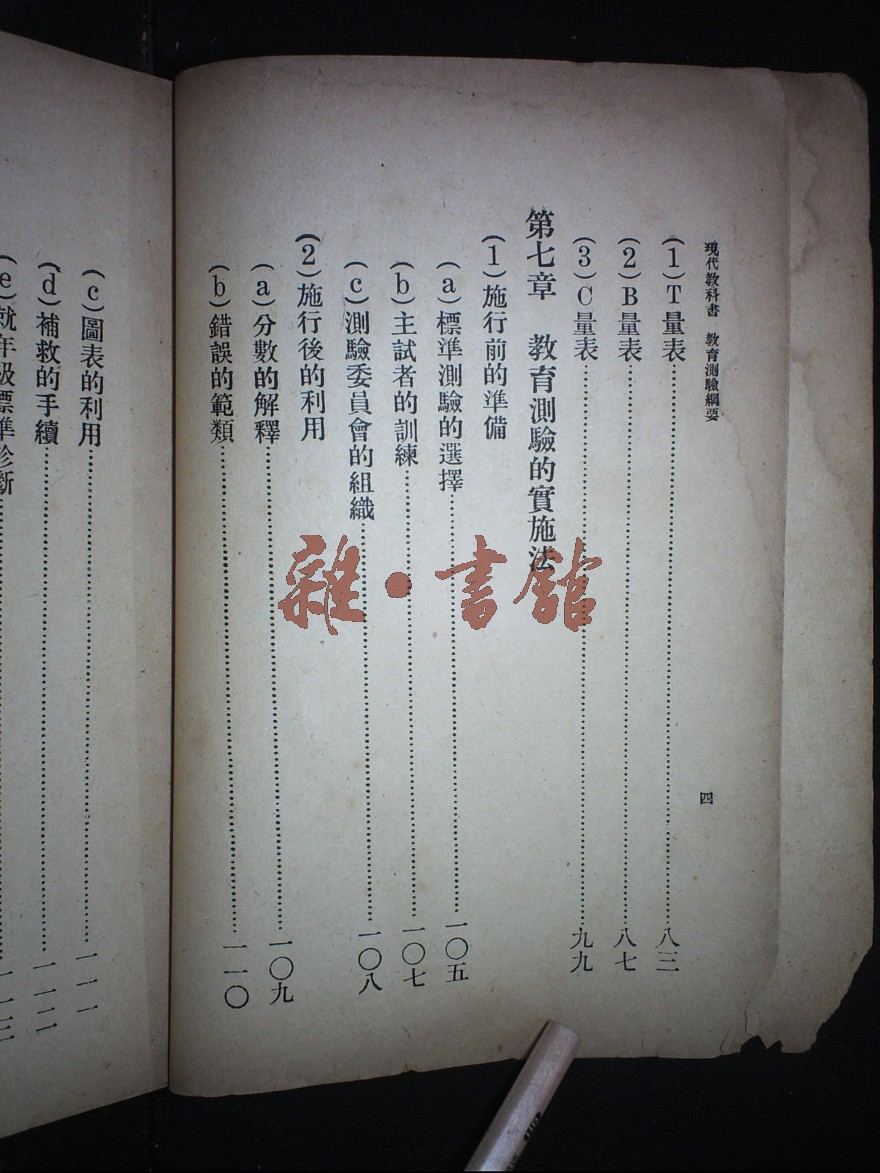 現代教科書　教育測驗綱要
四
(1)T量表……八三
(2)B量表……八七
(3)C量表……九九
第七章　教育測驗的實施法
(1)施行前的準備
(a)標準測驗的選擇……一〇五
(b)主試者的訓練……一〇七
(c)測驗委員會的組織……一〇八
(2)施行後的利用
(a)分數的解釋……一〇九
(b)錯誤的範類……一一〇
(c)圖表的利用……一一一
(d)補救的手續……一一二
(e)就年級標準診斷……一一三
雜·書館